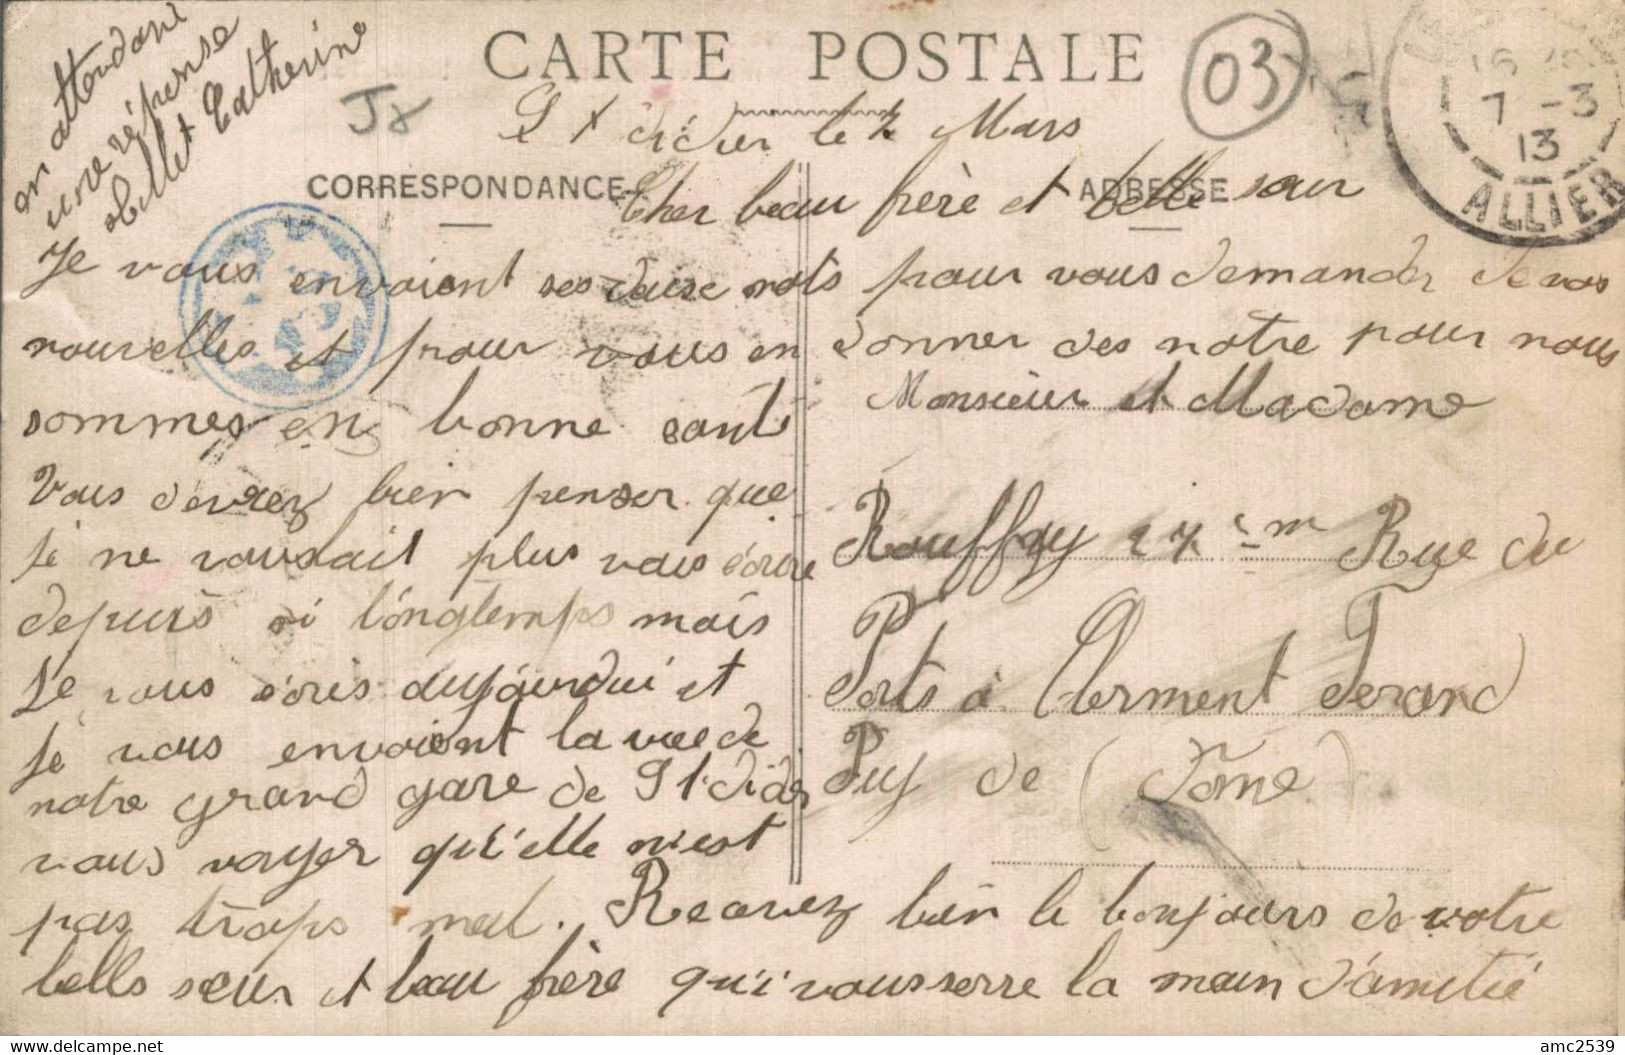 CARTE POSTALE
03
Jx
7 -3
13
ALLIER
en attendant
une réponse
Catherine
St didier le 7 Mars
CORRESPONDANCE
ADRESSE
Cher beau frère et belle sour
Je vous envoiont ses deuse mots pour vous demander de vos
nouvelles et pour vous en donner des notre pour nous
sommes en bonne santé
Vous devrez bien penser que
je ne voulait plus vous écrire
depuis si longtemps mais
Je vous écris aujourdui et
je vous envoiont la vue de
notre grand gare de St didier
vous voyer qu'elle n'est
pas trops mal. Recevez bien le bonjours de votre
belle seur et beau frère qui vous serre la main d'amitié
Monsieur et Madame
Rouffey 27 Rue du
Ports à Clerment Ferand
Puy de (Dome)
amc2539